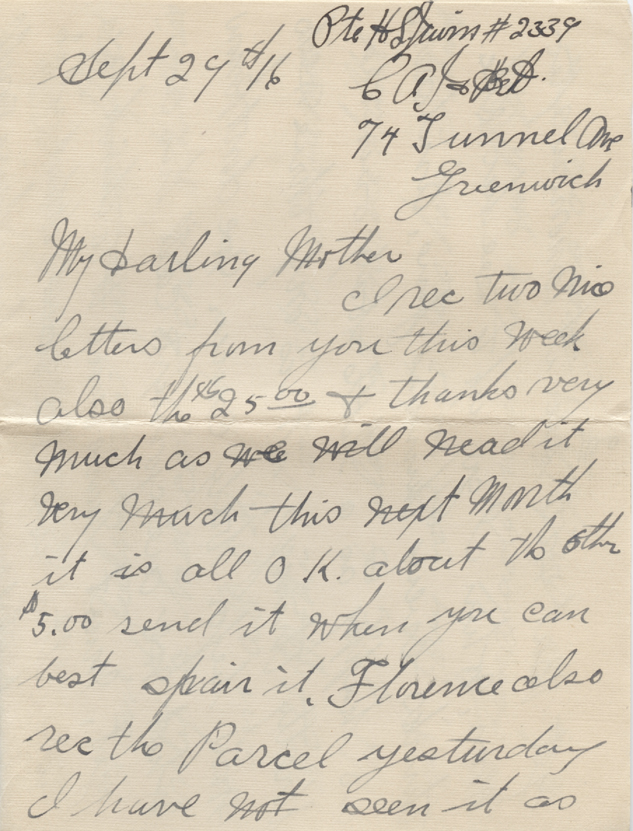 Sept 29th/16
Pte H Irwin # 2339
C A
74 Tunnel Ave
Greenwich
My Darling Mother
I rec two nic
letters from you this week
also the $25.00 & thanks very
much as we will nead it
very much this next Month
it is all O K. about the other
$5.00 send it when you can
best spair it. Florence also
rec the Parcel yesturday
I have not seen it as